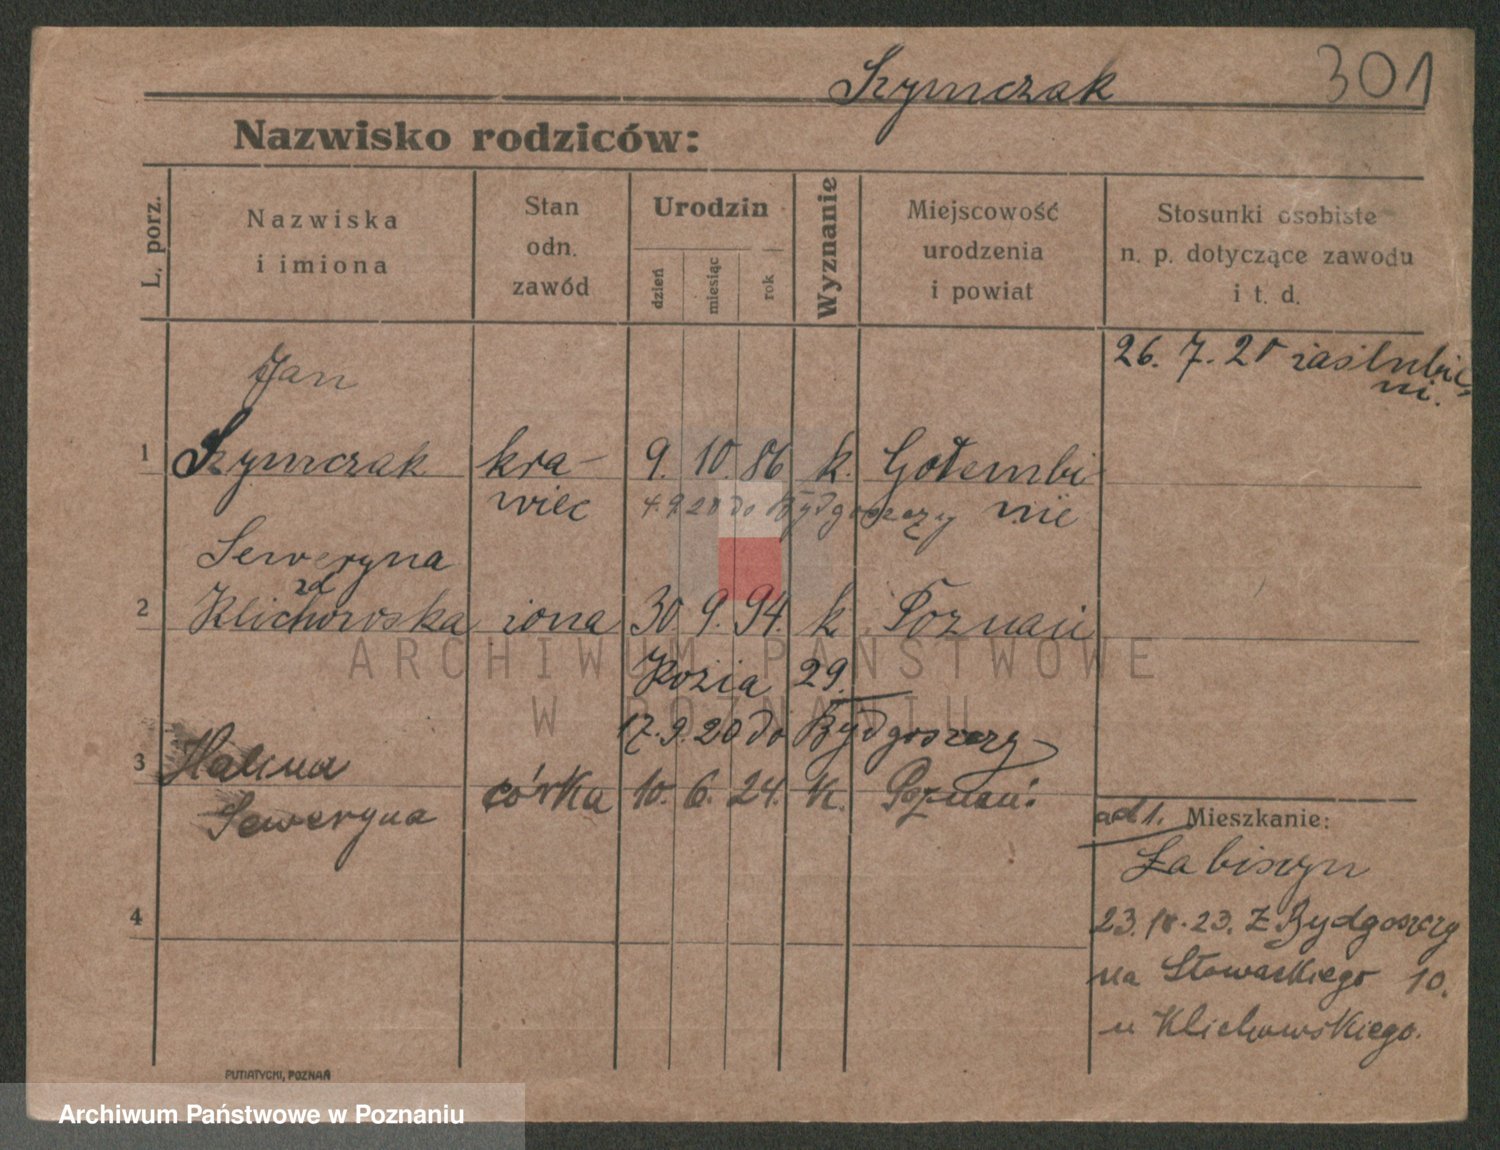 Szymczak
301
Nazwisko rodziców:
L. porz.
Nazwiska
i imiona
Stan
odn.
zawód
Urodzin
dzień
miesiąc
rok
Wyznanie
Miejscowość
urodzenia
i powiat
Stosunki osobiste
n. p. dotyczące zawodu
i t. d.
26. 7. 20 zaślubie
ni.
Jan
1 Szymczak kra- 9. 10. 86 k. Gołembi
wiec 4.9.20 do Bydgoszczy nie
Seweryna
zd
2 Klichowska żona 30 9. 94. k Poznań
Kozia 29.
17.9.20 do Bydgoszczy
3 Halina
Seweryna córka 10. 6. 24. k. Poznań.
ad 1. Mieszkanie:
Łabiszyn
4
23. 23. Z Bydgoszczy
na Słowackiego 10.
u Klichowskiego.
PUTIATYCKI, POZNAŃ
ARCHIWUM PAŃSTWOWE
W POZNANIU
Archiwum Państwowe w Poznaniu